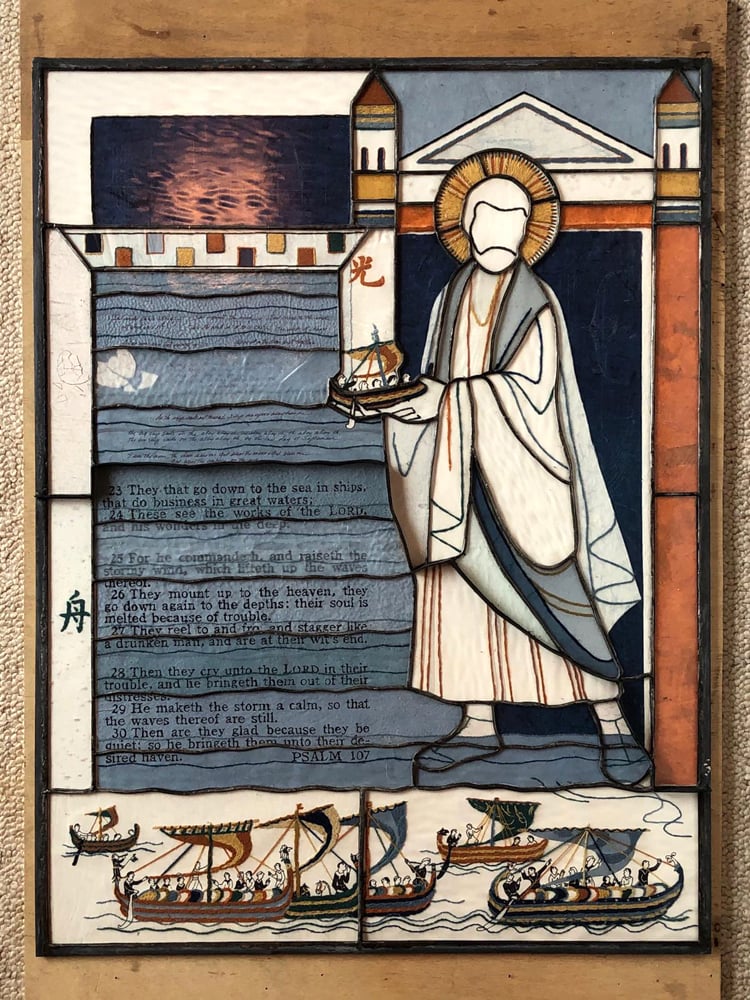 光
23 They that go down to the sea in ships,
that do business in great waters;
24 These see the works of the LORD,
and his wonders in the deep.
25 For he commandeth, and raiseth the
stormy wind, which lifteth up the waves
thereof.
26 They mount up to the heaven, they
go down again to the depths: their soul is
melted because of trouble.
27 They reel to and fro, and stagger like
a drunken man, and are at their wit's end.
28 Then they cry unto the LORD in their
trouble, and he bringeth them out of their
distresses.
29 He maketh the storm a calm, so that
the waves thereof are still.
30 Then are they glad because they be
quiet; so he bringeth them unto their de-
sired haven. PSALM 107
舟